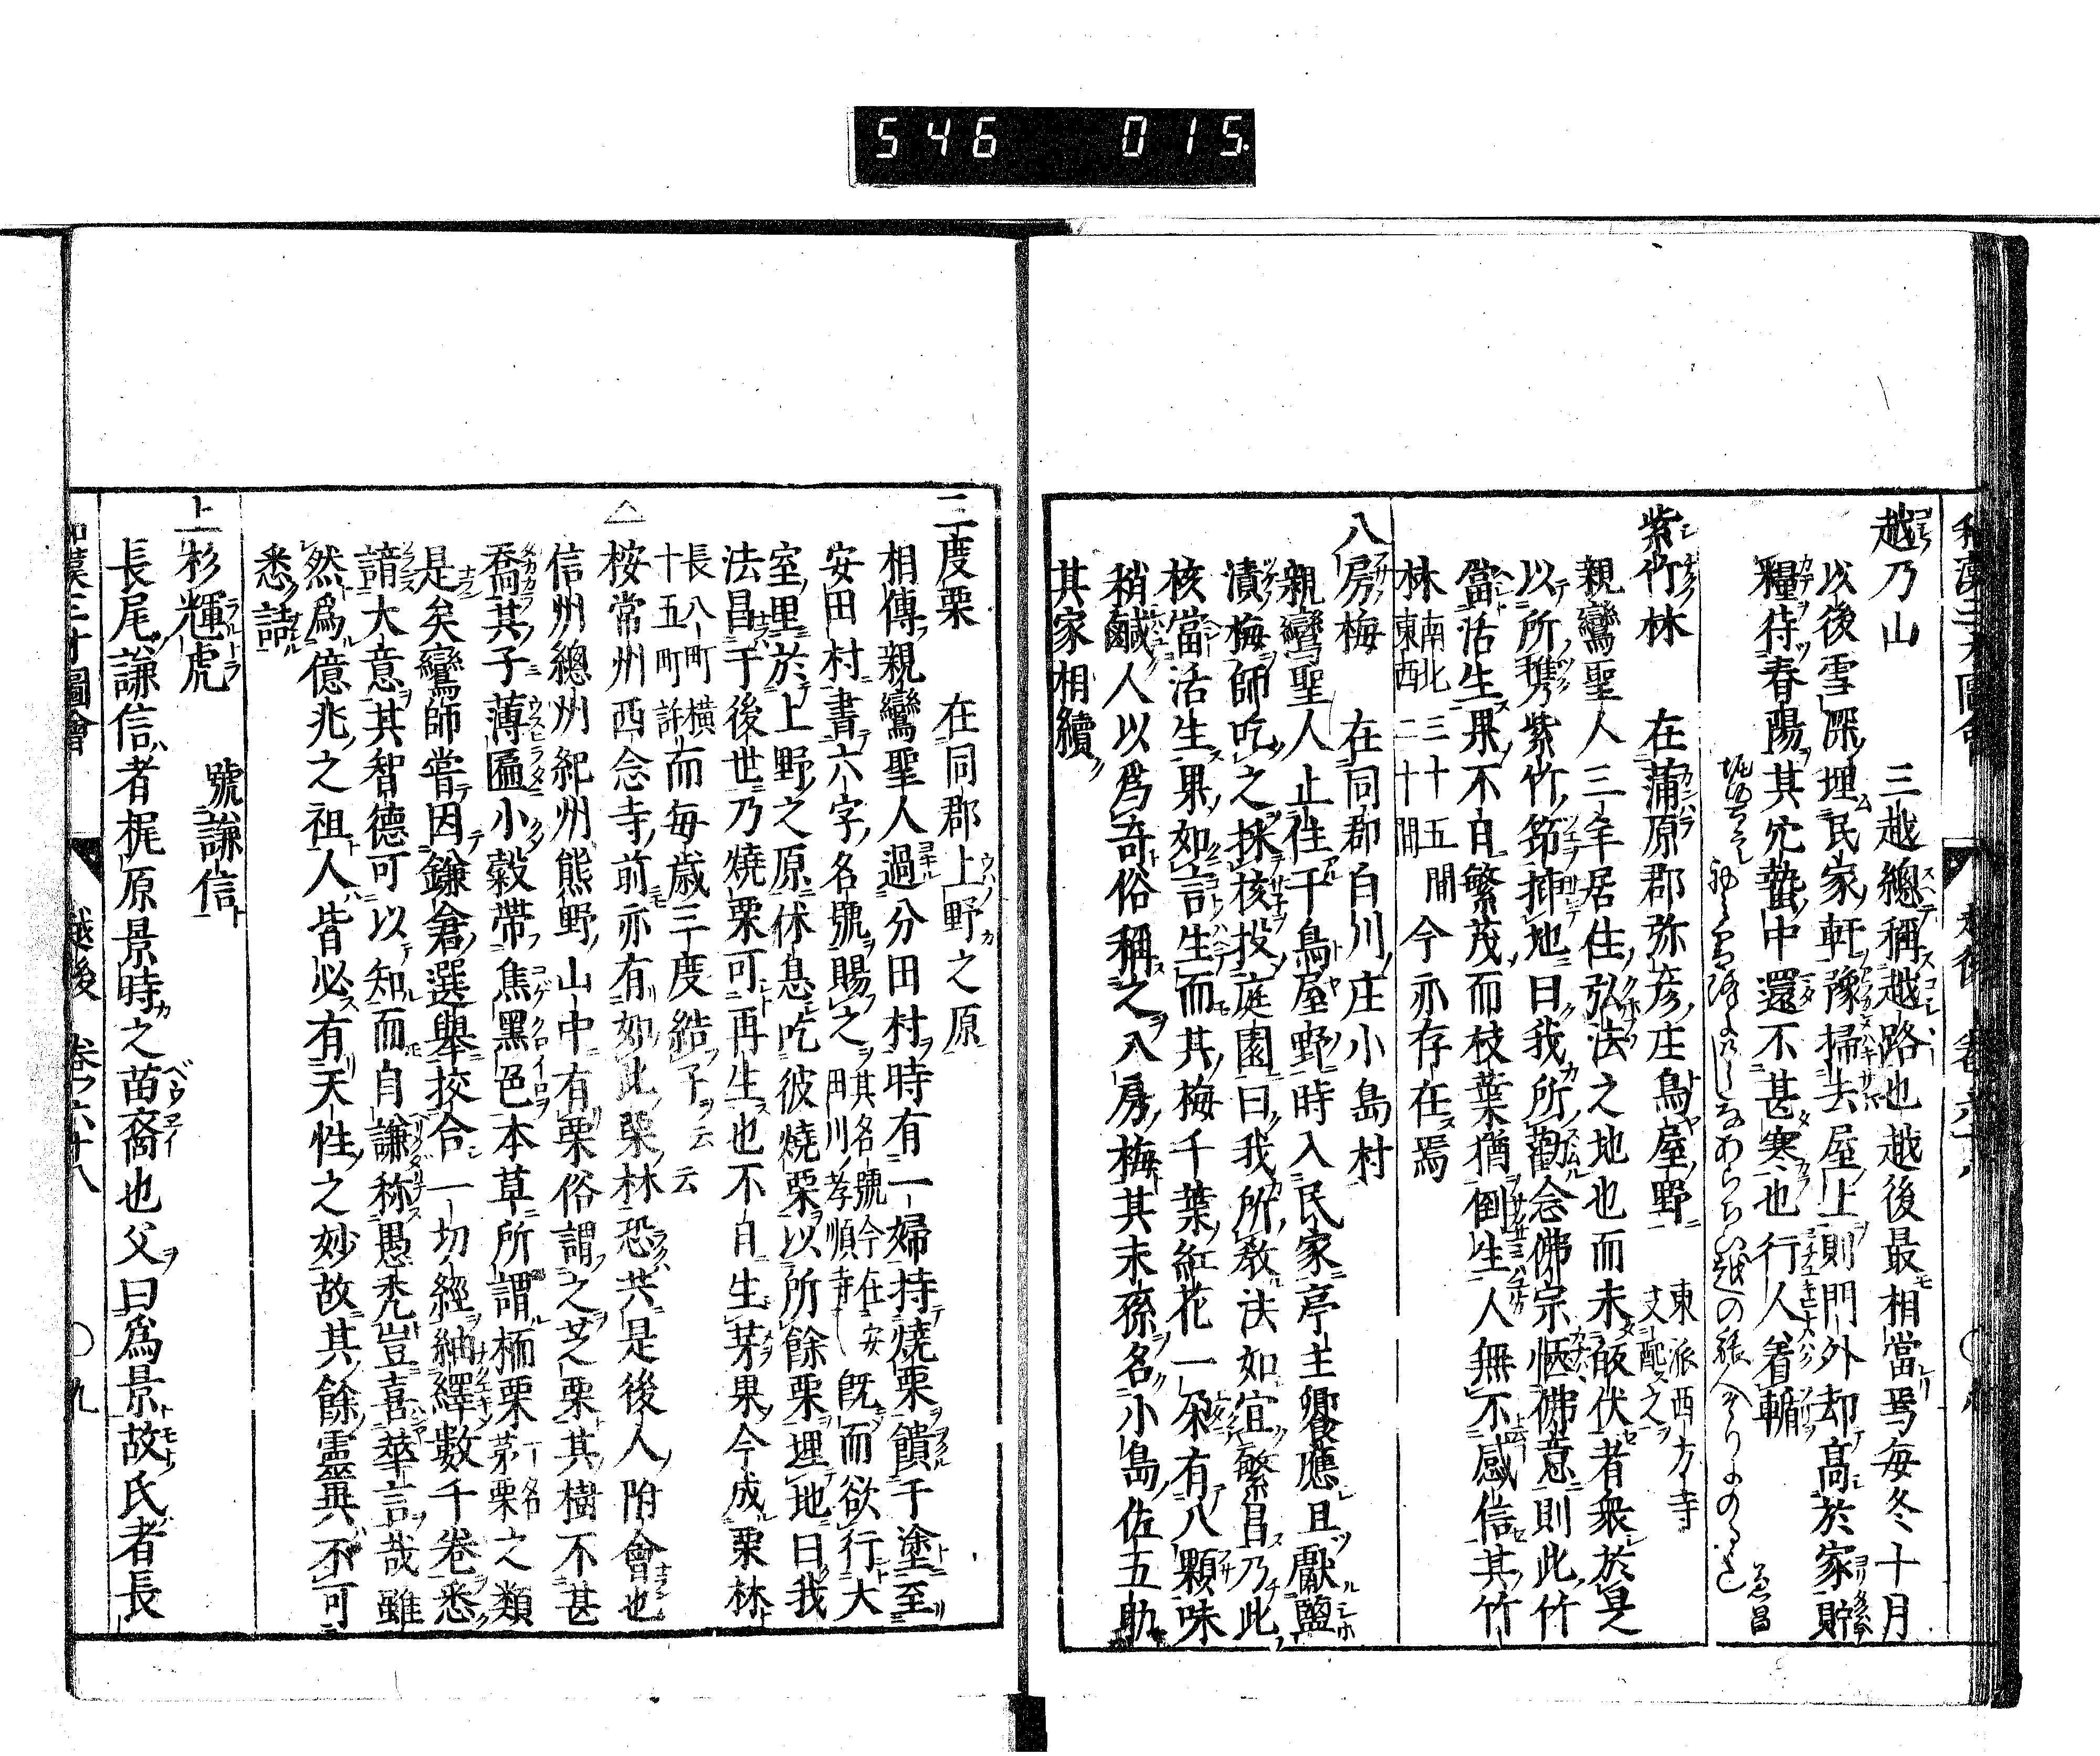 546 015
越乃山 三越總稱越路也越後最相當焉每冬十月
以後雪深埋民家軒豫掃去屋上則門外却高於家貯
糧待春陽其穴蟄中還不甚寒也行人着輴
紫竹林 在蒲原郡弥彦庄鳥屋野 東派西方寺支配之
親鸞聖人三年居住弘法之地也而未皈伏者衆於是
以所携紫竹筇挿地曰我所勸念佛宗愜佛意則此竹
當活生果不日繁茂而枝葉猶倒生人無不感信其竹
林 南北三十五間 東西二十間 今亦存在焉
八房梅 在同郡白川庄小島村
親鸞聖人止住于鳥屋野時入民家亭主饗應且獻鹽
漬梅師吃之採核投庭園曰我所教法如宜繁昌乃此
核當活生果如言生而其梅千葉紅花一朶有八顆味
稍鹹人以爲奇俗稱之八房梅其末孫名小島佐五助
其家相續
三度栗 在同郡上野之原
相傳親鸞聖人過分田村時有一婦持燒栗饋于塗至
安田村書六字名號賜之 其名號今在安田川孝順寺 既而欲行大
室里於上野之原休息吃彼燒栗以所餘栗埋地曰我
法昌于後世乃燒栗可再生也不日生芽果今成栗林
長八町橫十五町許 而每歳三度結子云云
△桉常州西念寺前亦有如此栗林恐共是後人附會也
信州總州紀州熊野山中有栗俗謂之芝栗其樹不甚
喬其子薄匾小穀帶焦黑色本草所謂栭栗 一名茅栗 之類
是矣鸞師嘗因鎌倉選舉挍合一切經紬繹數千卷悉
諳大意其智德可以知而自謙称愚禿豈喜華言哉雖
然爲億兆之祖人皆必有天性之妙故其餘靈異不可
悉詰
上杉輝虎 號謙信
長尾謙信者梶原景時之苗裔也父曰爲景故氏者長
和漢三才圖會 越後 卷之六十八 〇九